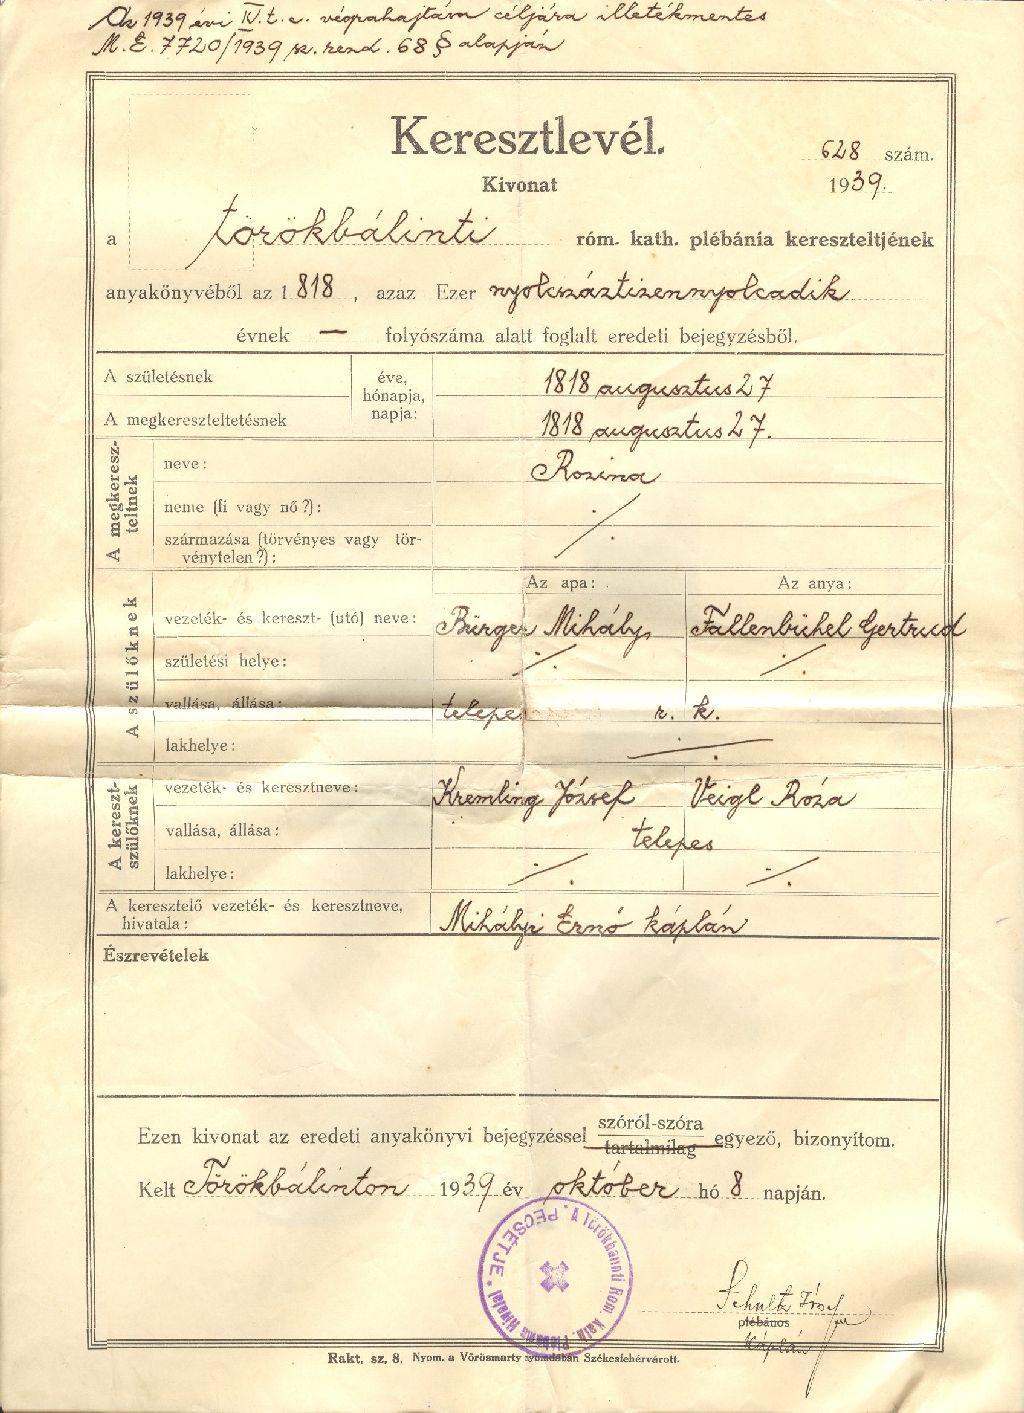 Az 1939 évi IV. t. c. végrahajtása céljára illetékmentes
M. E. 7720/1939 sz. rend. 68 § alapján
Keresztlevél.
628 szám.
Kivonat
1939.
a törökbálinti róm. kath. plébánia kereszteltjének
anyakönyvéből az 1818, azaz Ezer nyolcszáztizennyolcadik
évnek — folyószáma alatt foglalt eredeti bejegyzésből.
A születésnek éve, hónapja, napja: 1818 augusztus 27
A megkereszteltetésnek 1818 augusztus 27.
A megkereszteltnek
neve: Rozina
neme (fi vagy nő?):
származása (törvényes vagy törvénytelen?): ./.
A szülőknek
Az apa: Az anya:
vezeték- és kereszt- (utó) neve: Bürger Mihály, Fallenbüchel Gertrud
születési helye: ./. ./.
vallása, állása: telepes r. k.
lakhelye: ./.
A keresztszülőknek
vezeték- és keresztneve: Kremling József Veigl Róza
vallása, állása: telepes
lakhelye: ./. ./.
A keresztelő vezeték- és keresztneve,
hivatala: Mihályi Ernő káplán
Észrevételek
Ezen kivonat az eredeti anyakönyvi bejegyzéssel szóról-szóra tartalmilag egyező, bizonyítom.
Kelt Törökbálinton 1939 év október hó 8 napján.
A Törökbálinti Rom. Kath. Plébánia Hivatal PECSÉTJE.
Schultz József
plébános
káplán
Rakt. sz. 8. Nyom. a Vörösmarty nyomdában Székesfehérvárott.